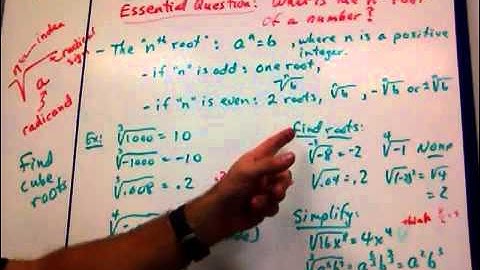 Essential Question: What is the nth root
of a number?
n ← index
√ ← radical sign
a
radicand
- The "nth root": aⁿ = b, where n is a positive
integer.
- if "n" is odd: one root,
ⁿ√b
- if "n" is even: 2 roots, ⁿ√b, -ⁿ√b or ±ⁿ√b
Find
cube
roots
Ex:
³√1000 = 10
³√-1000 = -10
³√.008 = .2
Find roots:
³√-8 = -2
√.04 = .2
⁴√-1 None
√(-2)² = √4
= 2
Simplify:
√16x⁸ = 4x⁴
think
= a²b³